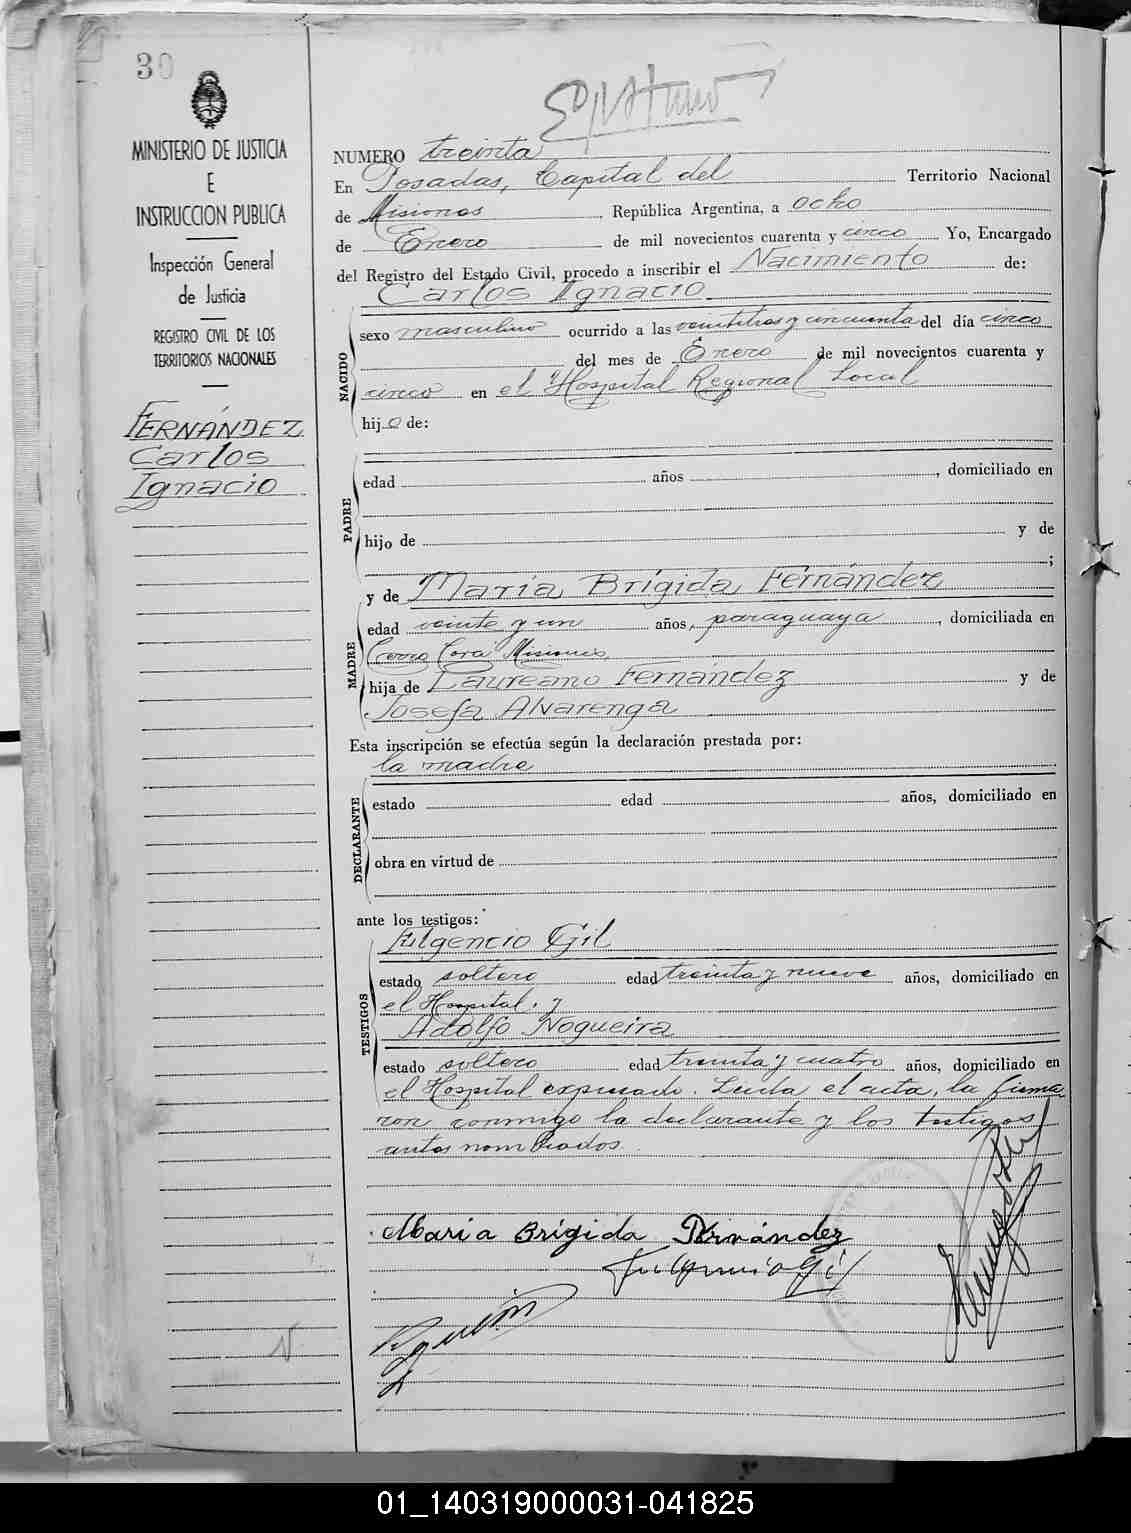 30
MINISTERIO DE JUSTICIA
E
INSTRUCCION PUBLICA
Inspección General
de Justicia
REGISTRO CIVIL DE LOS
TERRITORIOS NACIONALES
FERNÁNDEZ
Carlos
Ignacio
NUMERO treinta
En Posadas, Capital del Territorio Nacional
de Misiones, República Argentina, a ocho
de Enero de mil novecientos cuarenta y cinco Yo, Encargado
del Registro del Estado Civil, procedo a inscribir el Nacimiento de:
Carlos Ignacio
NACIDO
sexo masculino ocurrido a las veintitres y cincuenta del día cinco
del mes de Enero de mil novecientos cuarenta y
cinco en el Hospital Regional Local
hijo de:
PADRE
edad años, domiciliado en
hijo de y de
;
MADRE
y de María Brígida Fernández
edad veinte y un años, paraguaya, domiciliada en
Cerro Corá Misiones,
hija de Laureano Fernández y de
Josefa Alvarenga
Esta inscripción se efectúa según la declaración prestada por:
la madre
DECLARANTE
estado edad años, domiciliado en
obra en virtud de
ante los testigos:
TESTIGOS
Fulgencio Gil
estado soltero edad treinta y nueve años, domiciliado en
el Hospital, y
Adolfo Nogueira
estado soltero edad treinta y cuatro años, domiciliado en
el Hospital expresado. Leida el acta, la firma
ron conmigo la declarante y los testigos
antes nombrados.
Maria Brígida Fernández
Fulgencio Gil
01_140319000031-041825